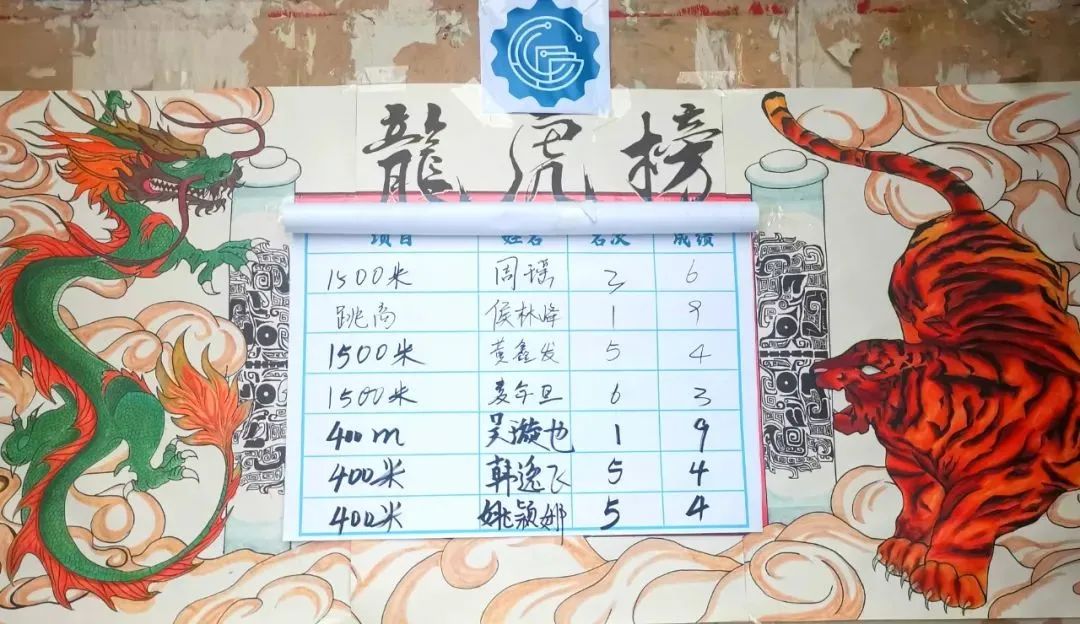 龍虎榜
项目 姓名 名次 成绩
1500米 周瑶 3 6
跳高 侯林峰 1 9
1500米 黄鑫发 5 4
1500米 麦尔旦 6 3
400m 吴漩也 1 9
400米 韩逸飞 5 4
400米 姚颖娜 5 4